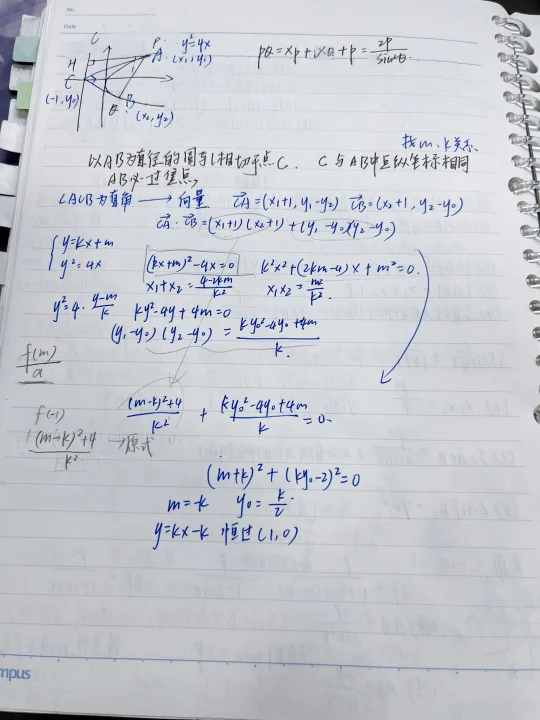 No.
Date
P.
A
y²=4x
(x₁,y₁)
H
C
(-1,y₀)
Q
B
(x₂,y₂)
PQ=xP+xQ+p=2p/sin²θ.
找m、k关系
以AB为直径的圆与l相切于点C. C与AB中点纵坐标相同
AB必过焦点
∠ACB为直角 → 向量 CA=(x₁+1, y₁-y₂) CB=(x₂+1, y₂-y₀)
CA·CB=(x₁+1)(x₂+1)+(y₁-y₀)(y₂-y₀)
{y=kx+m
y²=4x
(kx+m)²-4x=0 k²x²+(2km-4)x+m²=0.
x₁+x₂=(4-2km)/k² x₁x₂=m²/k².
y²=4·(y-m)/k ky²-4y+4m=0
(y₁-y₀)(y₂-y₀)=(ky₀²-4y₀+4m)/k.
f(m)/a
f(-1)
((m-k)²+4)/k² + (ky₀²-4y₀+4m)/k=0.
((m+k)²+4)/k² →原式
(m+k)²+(ky₀-2)²=0
m=-k y₀=k/2.
y=kx-k 恒过(1,0)
mpus